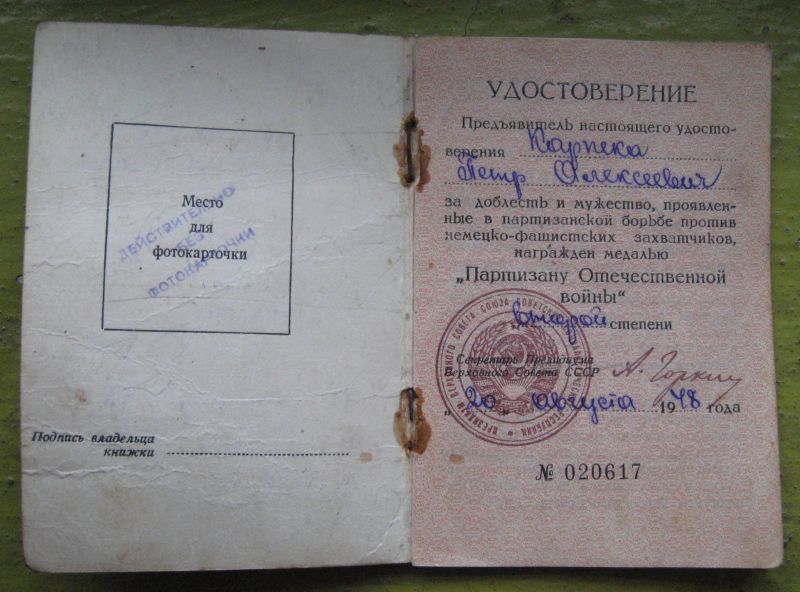 Место
для
фотокарточки
ДЕЙСТВИТЕЛЬНО
БЕЗ
ФОТОКАРТОЧКИ
Подпись владельца
книжки
УДОСТОВЕРЕНИЕ
Предъявитель настоящего удосто-
верения Карпека
Петр Алексеевич
за доблесть и мужество, проявлен-
ные в партизанской борьбе против
немецко-фашистских захватчиков,
награжден медалью
„Партизану Отечественной
войны“
второй степени
Секретарь Президиума
Верховного Совета СССР А. Горкин
„20„ августа 1948 года
№ 020617